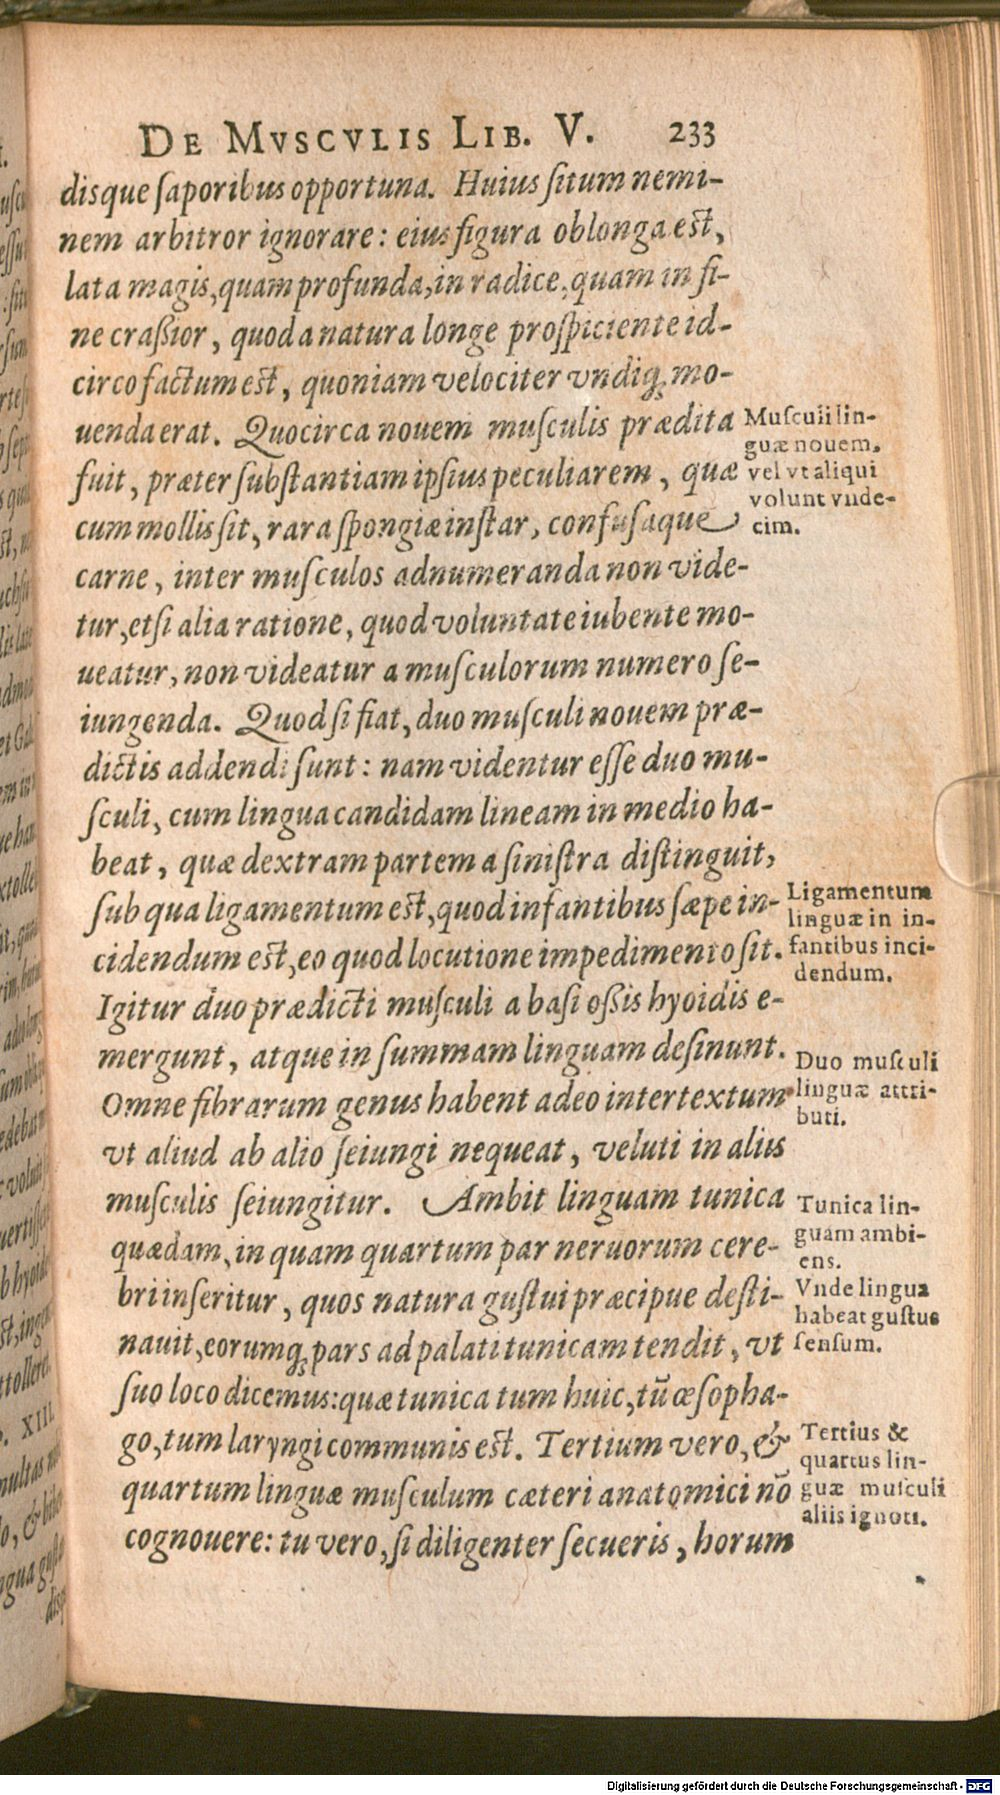 DE MVSCVLIS LIB. V. 233
disque ſaporibus opportuna. Huius ſitum nemi-
nem arbitror ignorare: eius figura oblonga est,
lata magis, quam profunda, in radice, quam in fi-
ne craßior, quod a natura longe proſpiciente id-
circo factum est, quoniam velociter vndiq; mo-
uenda erat. Quocirca nouem muſculis prædita
fuit, præter ſubſtantiam ipſius peculiarem, quæ
cum mollis ſit, rara ſpongiæ inſtar, confuſaque
carne, inter muſculos adnumeranda non vide-
tur, etſi alia ratione, quod voluntate iubente mo-
ueatur, non videatur a muſculorum numero ſe-
iungenda. Quod ſi fiat, duo muſculi nouem præ-
dictis addendi ſunt: nam videntur eſſe duo mu-
ſculi, cum lingua candidam lineam in medio ha-
beat, quæ dextram partem a ſiniſtra diſtinguit,
ſub qua ligamentum est, quod infantibus ſæpe in-
cidendum est, eo quod locutione impedimento ſit.
Igitur duo prædicti muſculi a baſi oßis hyoidis e-
mergunt, atque in ſummam linguam deſinunt.
Omne fibrarum genus habent adeo intertextum
vt aliud ab alio ſeiungi nequeat, veluti in aliis
muſculis ſeiungitur. Ambit linguam tunica
quædam, in quam quartum par neruorum cere-
bri inſeritur, quos natura guſtui præcipue deſti-
nauit, eorumq; pars ad palati tunicam tendit, vt
ſuo loco dicemus: quæ tunica tum huic, tū œſopha-
go, tum laryngi communis est. Tertium vero, &
quartum linguæ muſculum cæteri anatomici nō
cognouere: tu vero, ſi diligenter ſecueris, horum
Muſculi lin-
guæ nouem,
vel vt aliqui
volunt vnde-
cim.
Ligamentum
linguæ in in-
fantibus inci-
dendum.
Duo muſculi
linguæ attri-
buti.
Tunica lin-
guam ambi-
ens.
Vnde lingua
habeat guſtus
ſenſum.
Tertius &
quartus lin-
guæ muſculi
aliis ignoti.
Digitalisierung gefördert durch die Deutsche Forschungsgemeinschaft - DFG